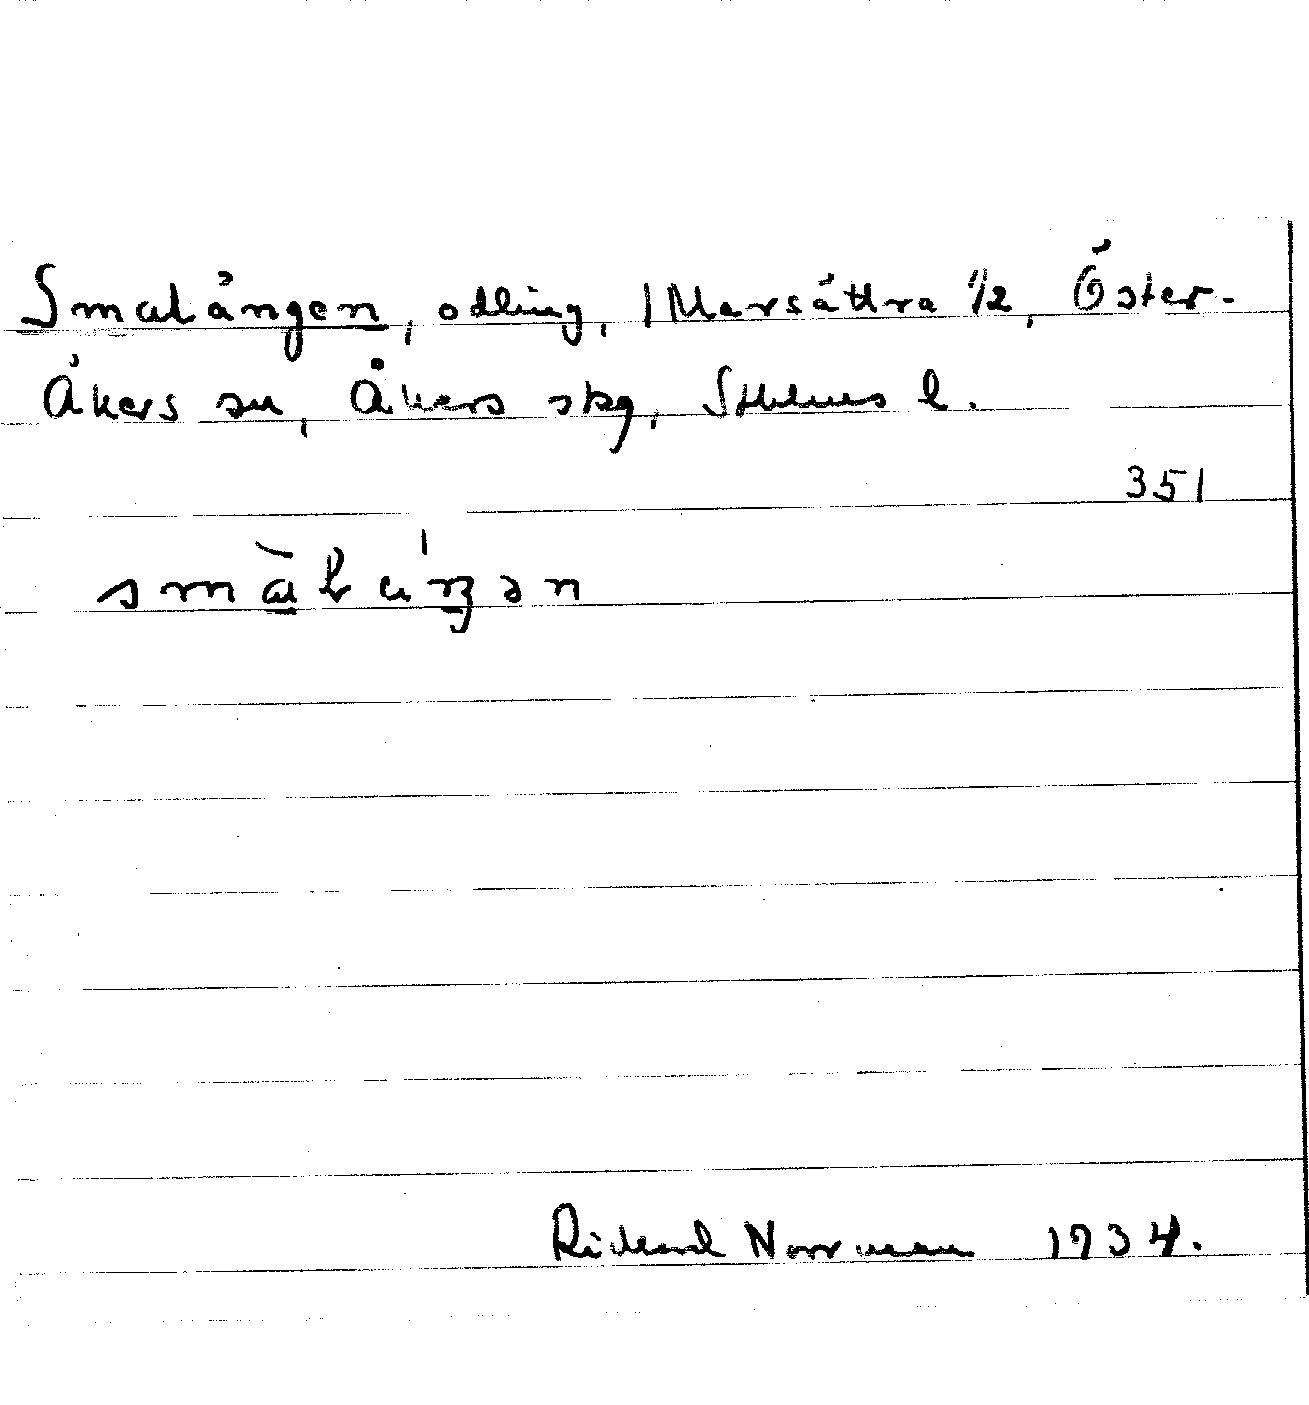 Smalängen, odling, 1 Marsättra 1/2, Öster-
Åkers sn, Åkers skg, Sthlms l.
351
Rickard Norrman 1934.